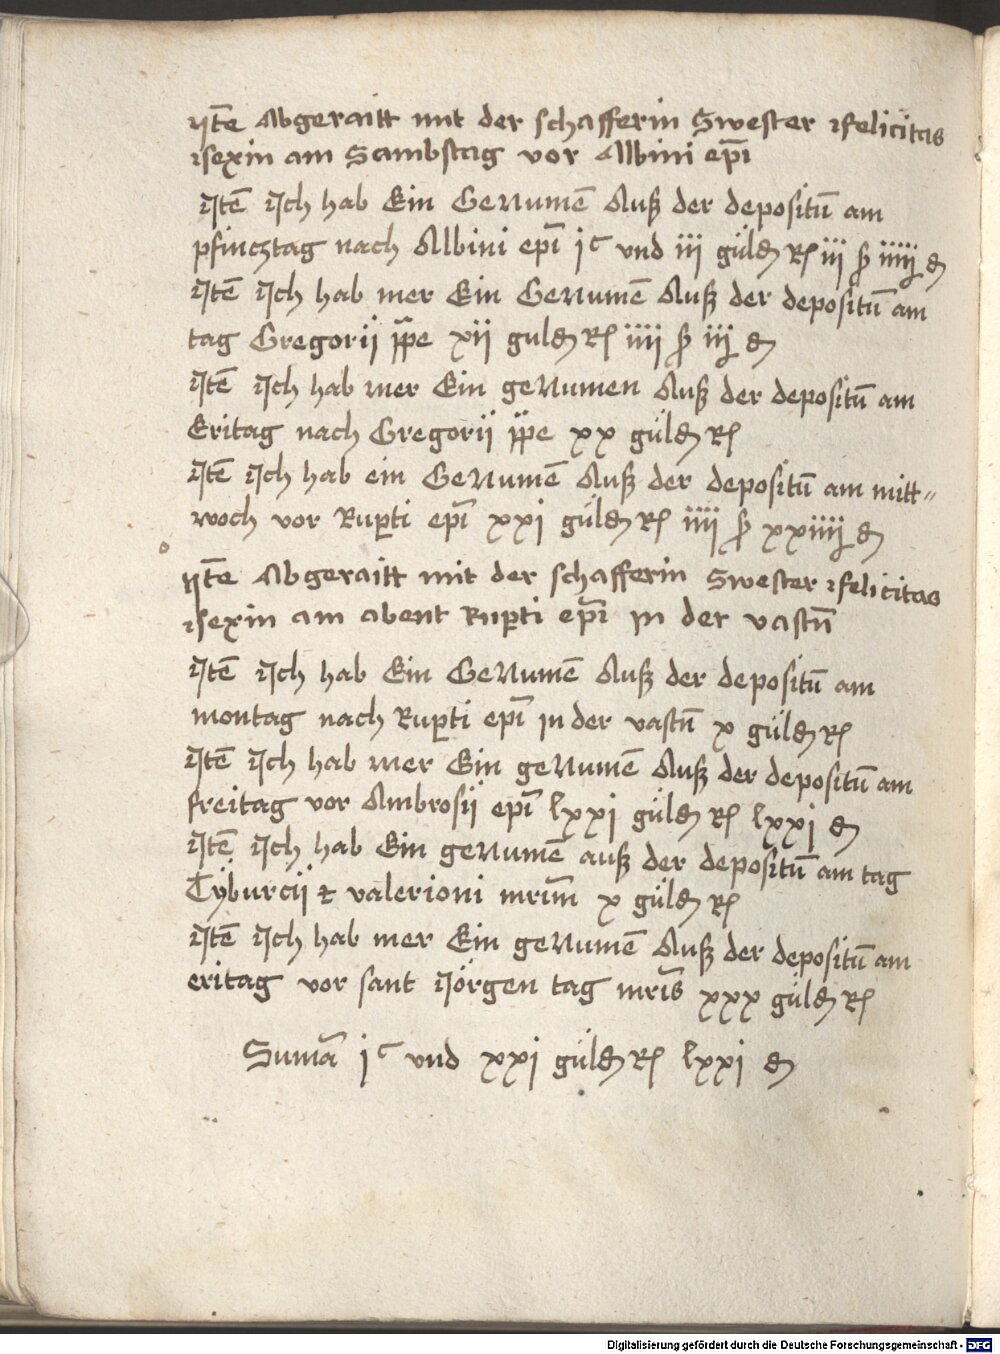 Itē Abgeraitt mit der schafferin Swester felicitas
sexin am Sambstag vor Albini ep̄i
Itē Ich hab Ein Genumē Auß der depositū am
pfincztag nach Albini ep̄i jᶜ und iii güldn̄ Rſ iii ß iiiij dn̄
Itē Ich hab mer Ein Genumē Auß der depositū am
tag Gregorij p̄pe xii guldn̄ Rſ iiii ß iij dn̄
Itē Ich hab mer Ein genumen Auß der depositū am
Eritag nach Gregorij p̄pe xx güldn̄ Rſ
Itē Ich hab ein Genumē Auß der depositū am mitt"
woch vor Rup̱ti ep̄i xxi güldn̄ Rſ iiii ß xxiiij dn̄
Itē Abgeraitt mit der schafferin Swester felicitas
sexin am abent Rup̱ti ep̄i in der vastn̄
Itē Ich hab Ein Genumē Auß der depositū am
montag nach Rup̱ti ep̄i in der vastn̄ x güldn̄ Rſ
Itē Ich hab mer Ein genumē Auß der depositū am
freitag vor Ambrosij ep̄i lxxi güldn̄ Rſ lxxi dn̄
Itē Ich hab Ein genumē auß der depositū am tag
Tÿburcij et valerioni mrim̄ x güldn̄ Rſ
Itē Ich hab mer Ein genumē Auß der depositū am
eritag vor sant Jörgen tag mr̄is xxx güldn̄ Rſ
Sumā jᶜ und xxi güldn̄ Rſ lxxi dn̄
Digitalisierung gefördert durch die Deutsche Forschungsgemeinschaft - DFG